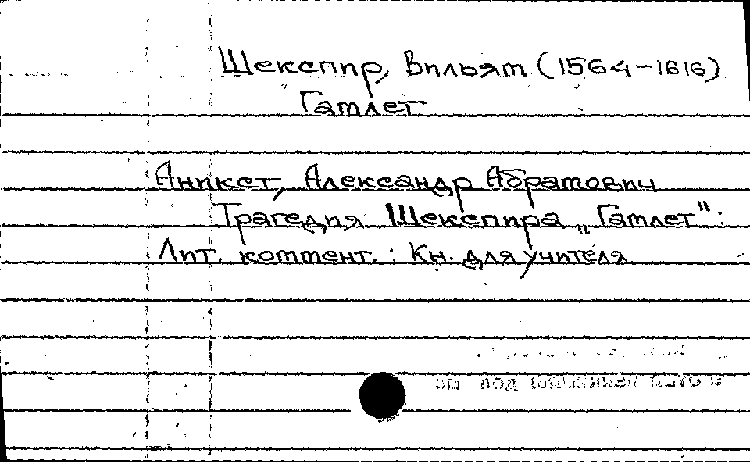 Шекспир, Вильям (1564-1616)
Гамлет
Аникст, Александр Абрамович
Трагедия Шекспира „Гамлет":
Лит. коммент. : Кн. для учителя